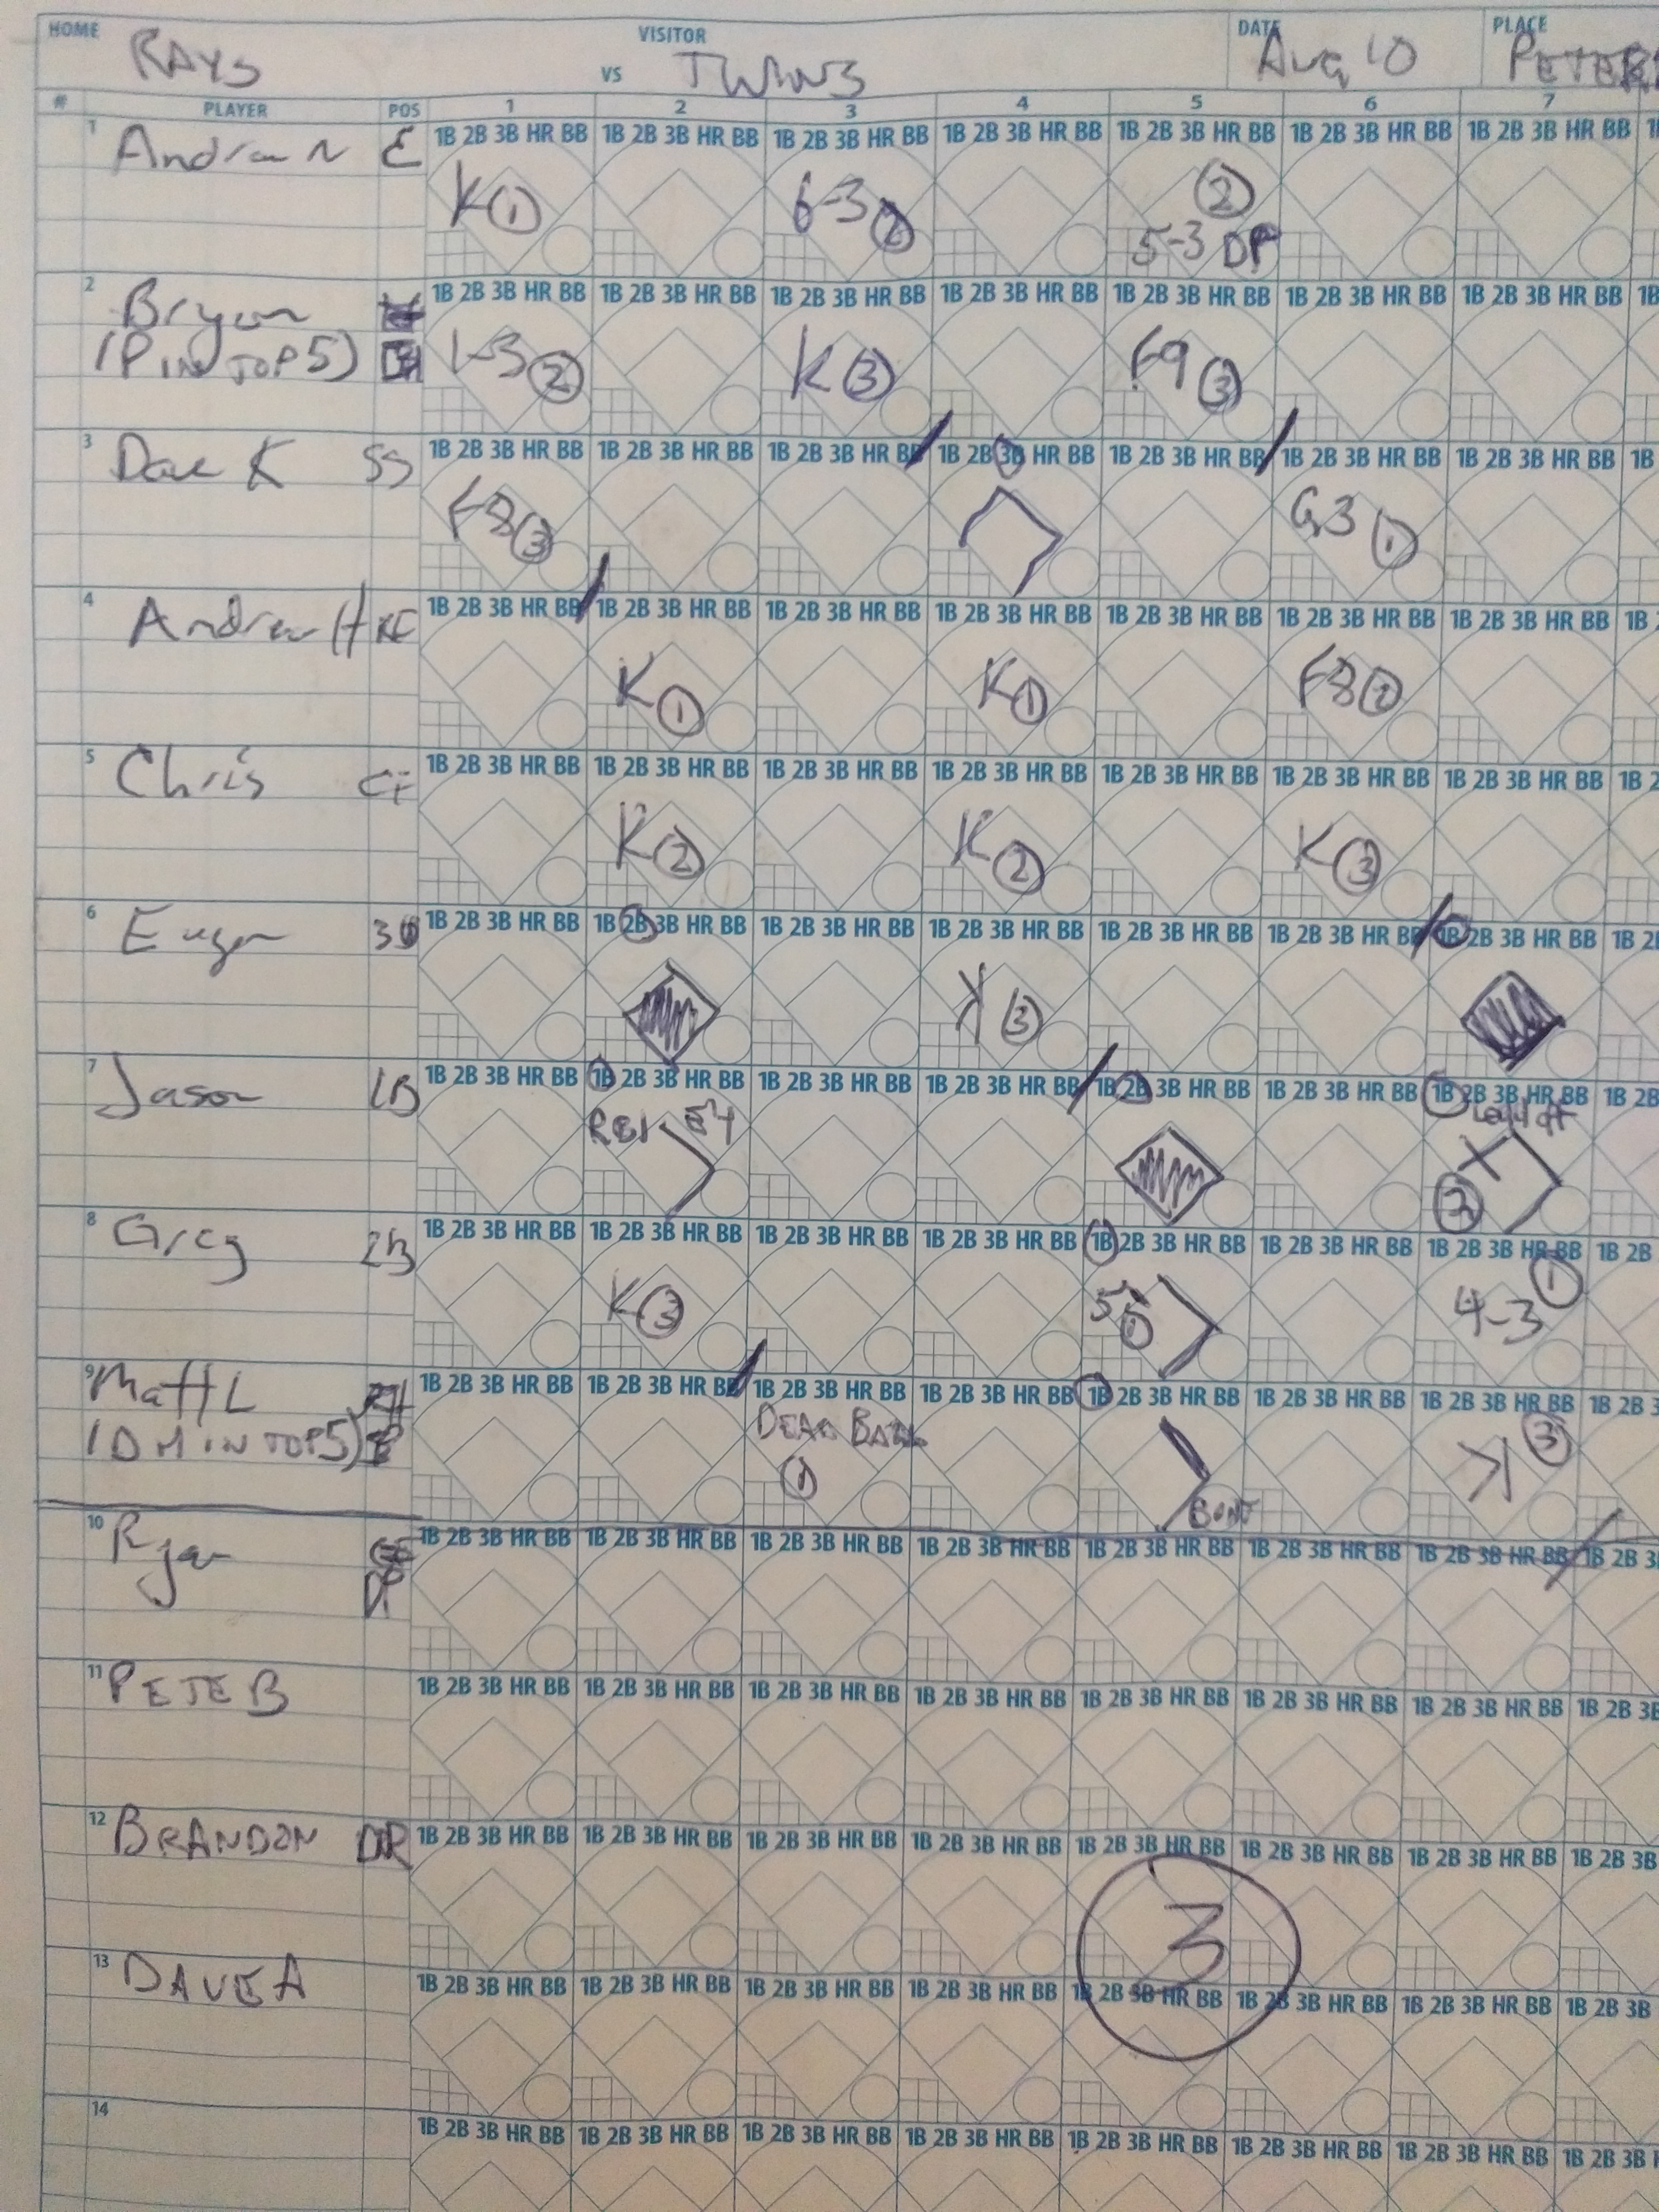 HOME RAYS VS VISITOR TWINS DATE AUG 10 PLACE
# PLAYER POS 1 2 3 4 5 6 7
1 Andrew N C 1B 2B 3B HR BB 1B 2B 3B HR BB 1B 2B 3B HR BB 1B 2B 3B HR BB 1B 2B 3B HR BB 1B 2B 3B HR BB 1B 2B 3B HR BB
K 1 6-3 2 2 5-3 DP
2 Bryan 1B 2B 3B HR BB 1B 2B 3B HR BB 1B 2B 3B HR BB 1B 2B 3B HR BB 1B 2B 3B HR BB 1B 2B 3B HR BB 1B 2B 3B HR BB 1B
(P IN TOP 5) 1-3 2 K 3 F9 3
3 Dave K SS 1B 2B 3B HR BB 1B 2B 3B HR BB 1B 2B 3B HR BB 1B 2B 3B HR BB 1B 2B 3B HR BB 1B 2B 3B HR BB 1B 2B 3B HR BB 1B
F8 3 G3 1
4 Andrew H 1B 2B 3B HR BB 1B 2B 3B HR BB 1B 2B 3B HR BB 1B 2B 3B HR BB 1B 2B 3B HR BB 1B 2B 3B HR BB 1B 2B 3B HR BB 1B
K 1 K 1 F8 2
5 Chris CF 1B 2B 3B HR BB 1B 2B 3B HR BB 1B 2B 3B HR BB 1B 2B 3B HR BB 1B 2B 3B HR BB 1B 2B 3B HR BB 1B 2B 3B HR BB 1B 2
K 2 K 2 K 3
6 Eugen 1B 2B 3B HR BB 1B 2B 3B HR BB 1B 2B 3B HR BB 1B 2B 3B HR BB 1B 2B 3B HR BB 1B 2B 3B HR BB 1B 2B 3B HR BB 1B 2
K 3
7 Jason 1B 1B 2B 3B HR BB 1B 2B 3B HR BB 1B 2B 3B HR BB 1B 2B 3B HR BB 1B 2B 3B HR BB 1B 2B 3B HR BB 1B 2B 3B HR BB 1B 2B
RBI Lead off 2
8 Greg 2B 1B 2B 3B HR BB 1B 2B 3B HR BB 1B 2B 3B HR BB 1B 2B 3B HR BB 1B 2B 3B HR BB 1B 2B 3B HR BB 1B 2B 3B HR BB 1B 2B
K 3 1 4-3 1
9 Matt L 1B 2B 3B HR BB 1B 2B 3B HR BB 1B 2B 3B HR BB 1B 2B 3B HR BB 1B 2B 3B HR BB 1B 2B 3B HR BB 1B 2B 3B HR BB 1B 2B 3
(DH IN TOP 5) DEAD BALL 1 BUNT K 3
10 Ryan 1B 2B 3B HR BB 1B 2B 3B HR BB 1B 2B 3B HR BB 1B 2B 3B HR BB 1B 2B 3B HR BB 1B 2B 3B HR BB 1B 2B 3B HR BB 1B 2B 3
11 PETE B 1B 2B 3B HR BB 1B 2B 3B HR BB 1B 2B 3B HR BB 1B 2B 3B HR BB 1B 2B 3B HR BB 1B 2B 3B HR BB 1B 2B 3B HR BB 1B 2B 3B
12 BRANDON DR 1B 2B 3B HR BB 1B 2B 3B HR BB 1B 2B 3B HR BB 1B 2B 3B HR BB 1B 2B 3B HR BB 1B 2B 3B HR BB 1B 2B 3B HR BB 1B 2B 3B
3
13 DAVE A 1B 2B 3B HR BB 1B 2B 3B HR BB 1B 2B 3B HR BB 1B 2B 3B HR BB 1B 2B 3B HR BB 1B 2B 3B HR BB 1B 2B 3B HR BB 1B 2B 3B
14 1B 2B 3B HR BB 1B 2B 3B HR BB 1B 2B 3B HR BB 1B 2B 3B HR BB 1B 2B 3B HR BB 1B 2B 3B HR BB 1B 2B 3B HR BB 1B 2B 3B